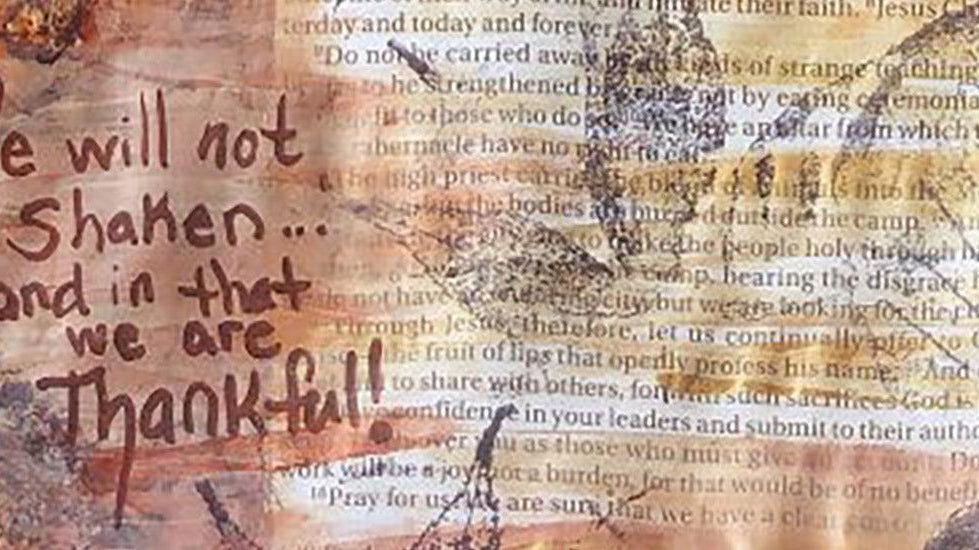 e will not
Shaken...
and in that
we are
Thankful!
ate their faith. "Jesus
terday and today and forever
"Do not be carried away of strange teaching
to be strengthened not by eating ceremoni
to those who do have an altar from which
abernacle have no right to eat.
the high priest carries the blood of animals into the
the bodies are burned outside the camp.
to make the people holy through
camp, bearing the disgrace
do not have city but we are looking for the
Through Jesus, therefore, let us continually offer to
the fruit of lips that openly profess his name. And
to share with others, for with such sacrifices God is
confidence in your leaders and submit to their autho
over you as those who must give
work will be a joy, not a burden, for that would be of no benef
18Pray for us. We are sure that we have a clear